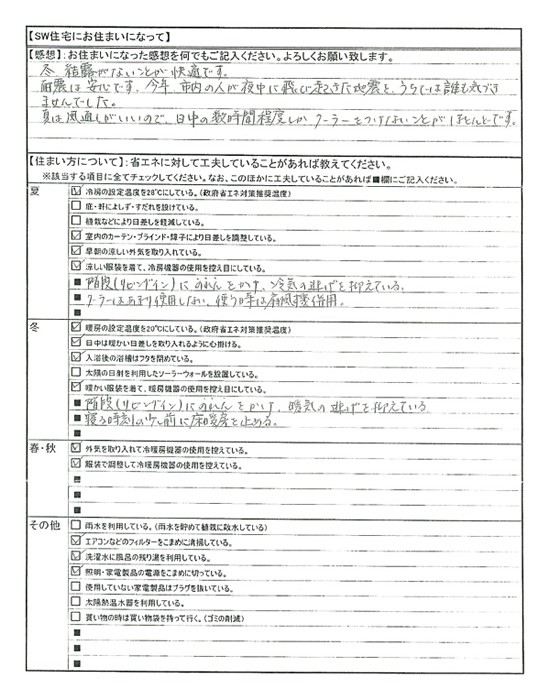 【SW住宅にお住まいになって】
【感想】:お住まいになった感想を何でもご記入ください。よろしくお願い致します。
冬 結露がないことが快適です。
耐震は安心です。今年、市内の人が夜中に飛び起きた地震も、うちでは誰も気づき
ませんでした。
夏は風通しがいいので、日中の数時間程度しかクーラーをつけないことがほとんどです。
【住まい方について】:省エネに対して工夫していることがあれば教えてください。
※該当する項目に全てチェックしてください。なお、このほかに工夫していることがあれば■欄にご記入ください。
夏
☑ 冷房の設定温度を28℃にしている。(政府省エネ対策推奨温度)
□ 庇・軒によしず・すだれを設けている。
□ 植栽などにより日差しを軽減している。
☑ 室内のカーテン・ブラインド・障子により日差しを調整している。
☑ 早朝の涼しい外気を取り入れている。
☑ 涼しい服装を着て、冷房機器の使用を控え目にしている。
■ 階段(リビングイン)にのれんをかけ、冷気の逃げを抑えている。
■ クーラーはあまり使用しない、使う時は扇風機併用。
■
冬
☑ 暖房の設定温度を20℃にしている。(政府省エネ対策推奨温度)
☑ 日中は暖かい日差しを取り入れるように心掛ける。
☑ 入浴後の浴槽はフタを閉めている。
□ 太陽の日射を利用したソーラーウォールを設置している。
☑ 暖かい服装を着て、暖房機器の使用を控え目にしている。
■ 階段(リビングイン)にのれんをかけ、暖気の逃げを抑えている
■ 寝る時刻の少し前に床暖房を止める。
■
春・秋
☑ 外気を取り入れて冷暖房機器の使用を控えている。
☑ 服装で調整して冷暖房機器の使用を控えている。
■
■
■
その他
□ 雨水を利用している。(雨水を貯めて植栽に散水している)
☑ エアコンなどのフィルターをこまめに清掃している。
☑ 洗濯水に風呂の残り湯を利用している。
☑ 照明・家電製品の電源をこまめに切っている。
□ 使用していない家電製品はプラグを抜いている。
□ 太陽熱温水器を利用している。
□ 買い物の時は買い物袋を持って行く。(ゴミの削減)
■
■
■